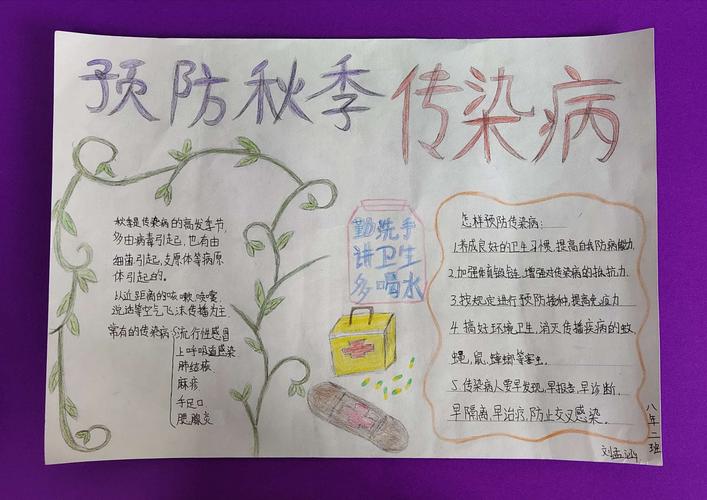 预防秋季传染病
秋季是传染病的高发季节,
多由病毒引起,也有由
细菌引起,支原体等病原
体引起的。
以近距离的咳嗽,喷嚏,
说话等空气飞沫传播为主.
常有的传染病:流行性感冒
上呼吸道感染
肺结核
麻疹
手足口
腮腺炎
勤洗手
讲卫生
多喝水
怎样预防传染病:
1.养成良好的卫生习惯,提高自我防病能力.
2.加强体育锻链,增强对传染病的抵抗力.
3.按规定进行预防接种,提高免疫力
4.搞好环境卫生,消灭传播疾病的蚊,
蝇,鼠,蟑螂等害虫.
5.传染病人要早发现,早报告,早诊断,
早隔离,早治疗,防止交叉感染.
八年二班